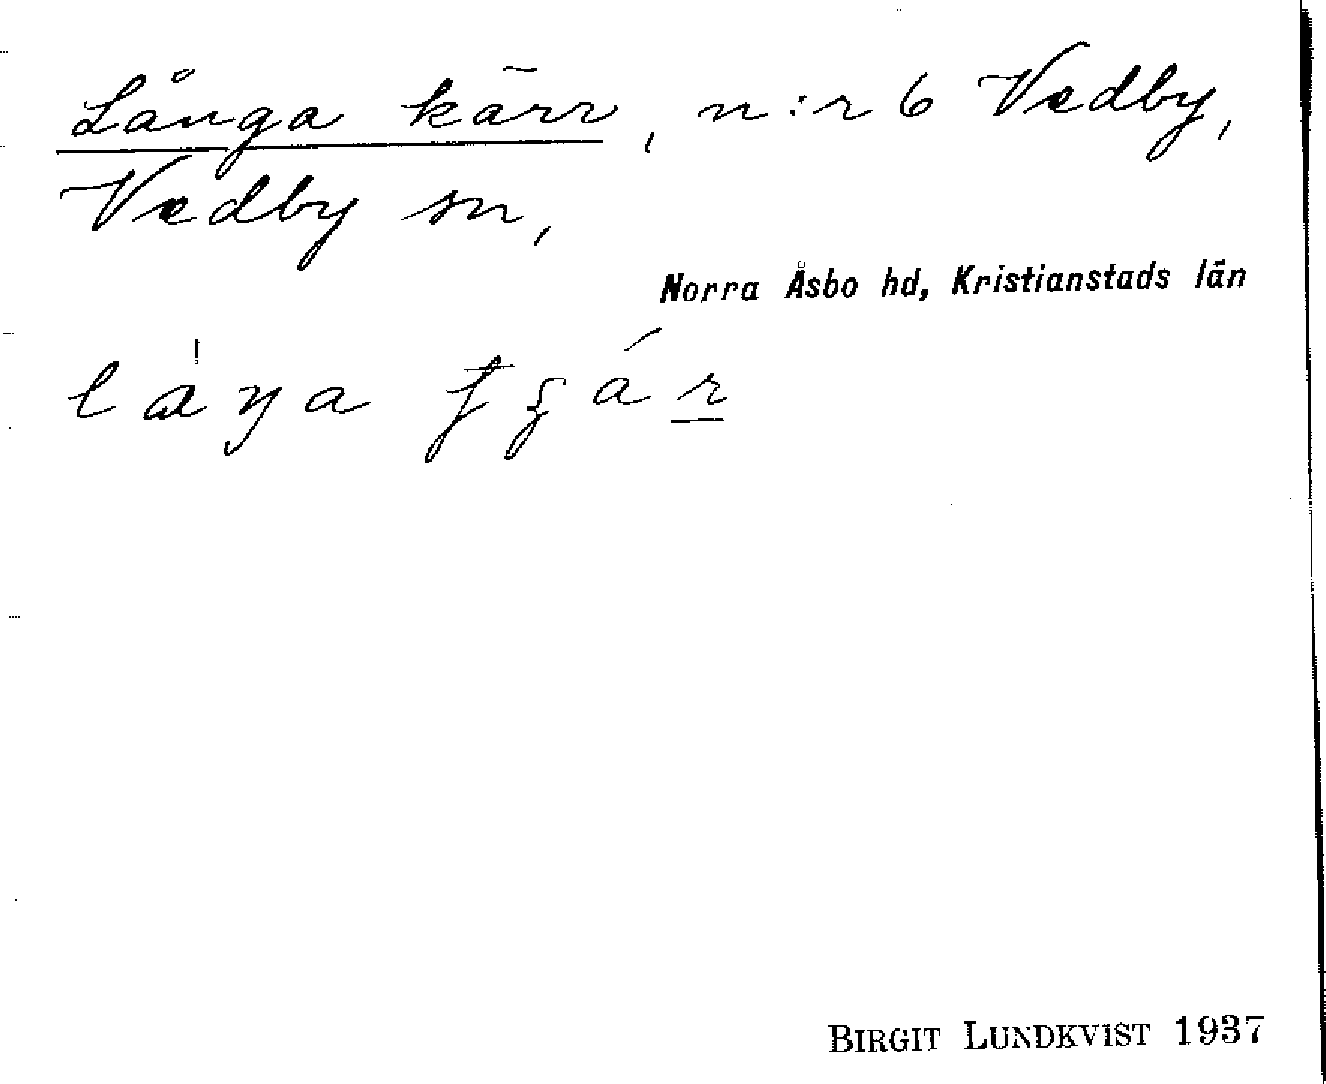 Långa kärr, n:r 6 Vedby,
Vedby sn,
Norra Åsbo hd, Kristianstads län
BIRGIT LUNDKVIST 1937